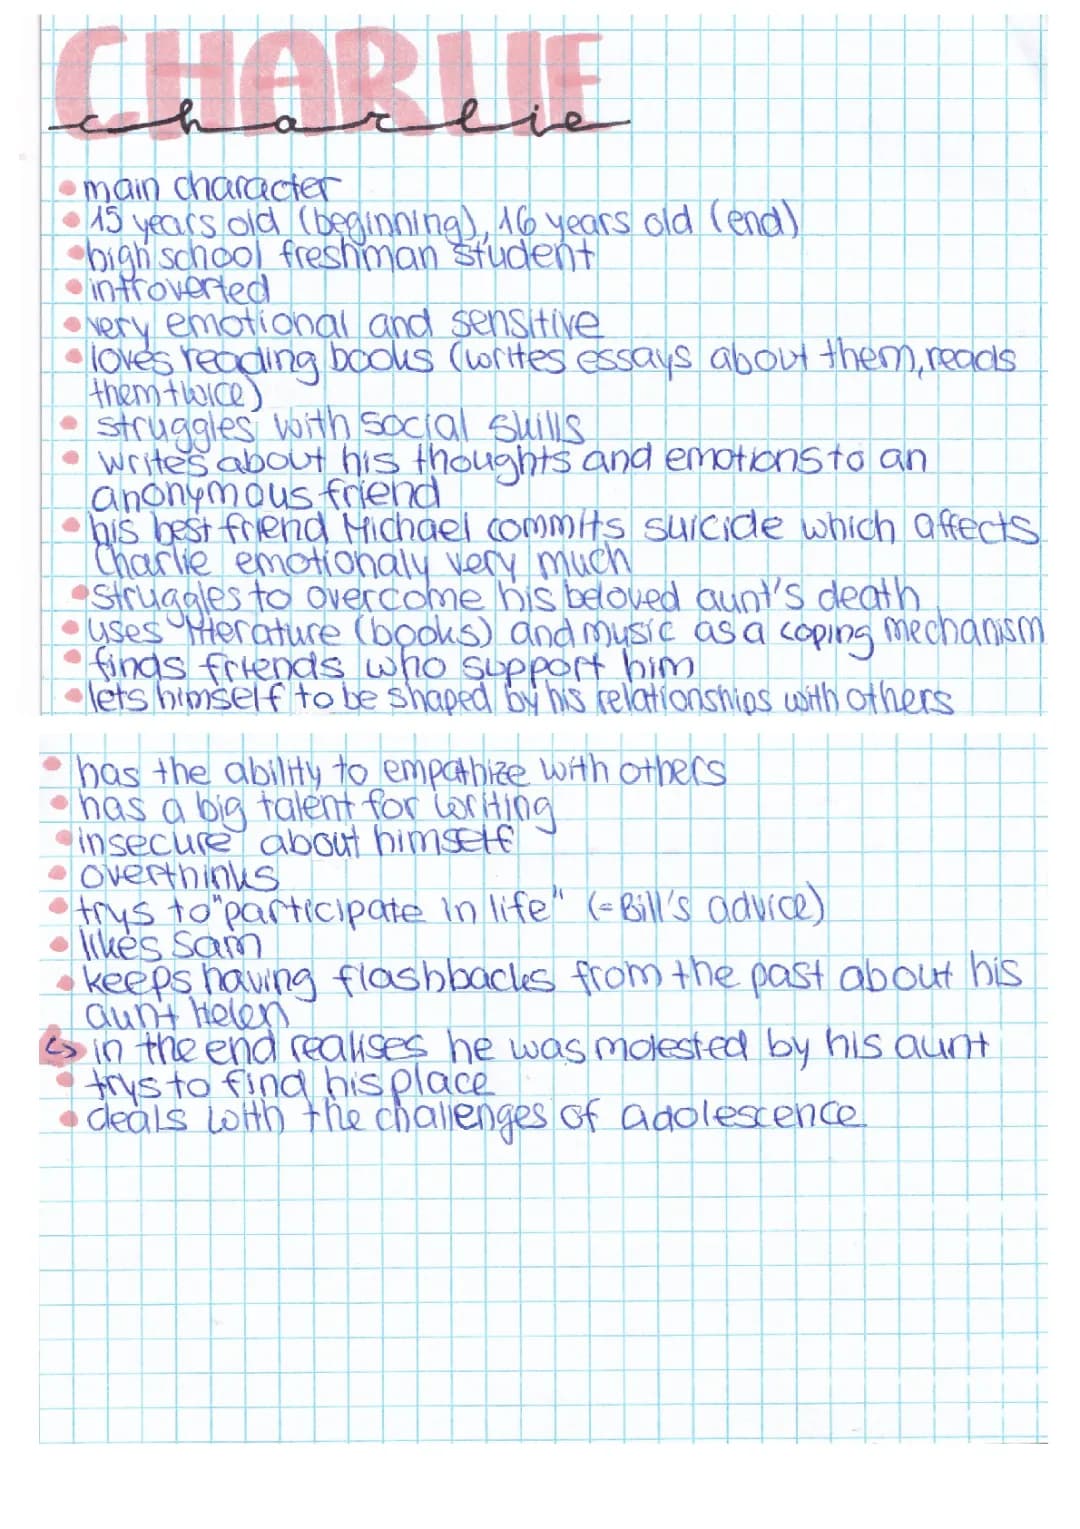 CHARLIE
charlie
• main character
• 15 years old (beginning), 16 years old (end)
• high school freshman student
• introverted
• very emotional and sensitive
• loves reading books (writes essays about them, reads
them twice)
• struggles with social skills
• writes about his thoughts and emotions to an
anonymous friend
• his best friend Michael commits suicide which affects
Charlie emotionaly very much
• struggles to overcome his beloved aunt's death
• uses literature (books) and music as a coping mechanism
• finds friends who support him
• lets himself to be shaped by his relationships with others
• has the ability to empathize with others
• has a big talent for writing
• insecure about himself
• overthinks
• trys to "participate in life" (= Bill's advice)
• likes Sam
• keeps having flashbacks from the past about his
aunt Helen
↳ in the end realises he was molested by his aunt
• trys to find his place
• deals with the challenges of adolescence